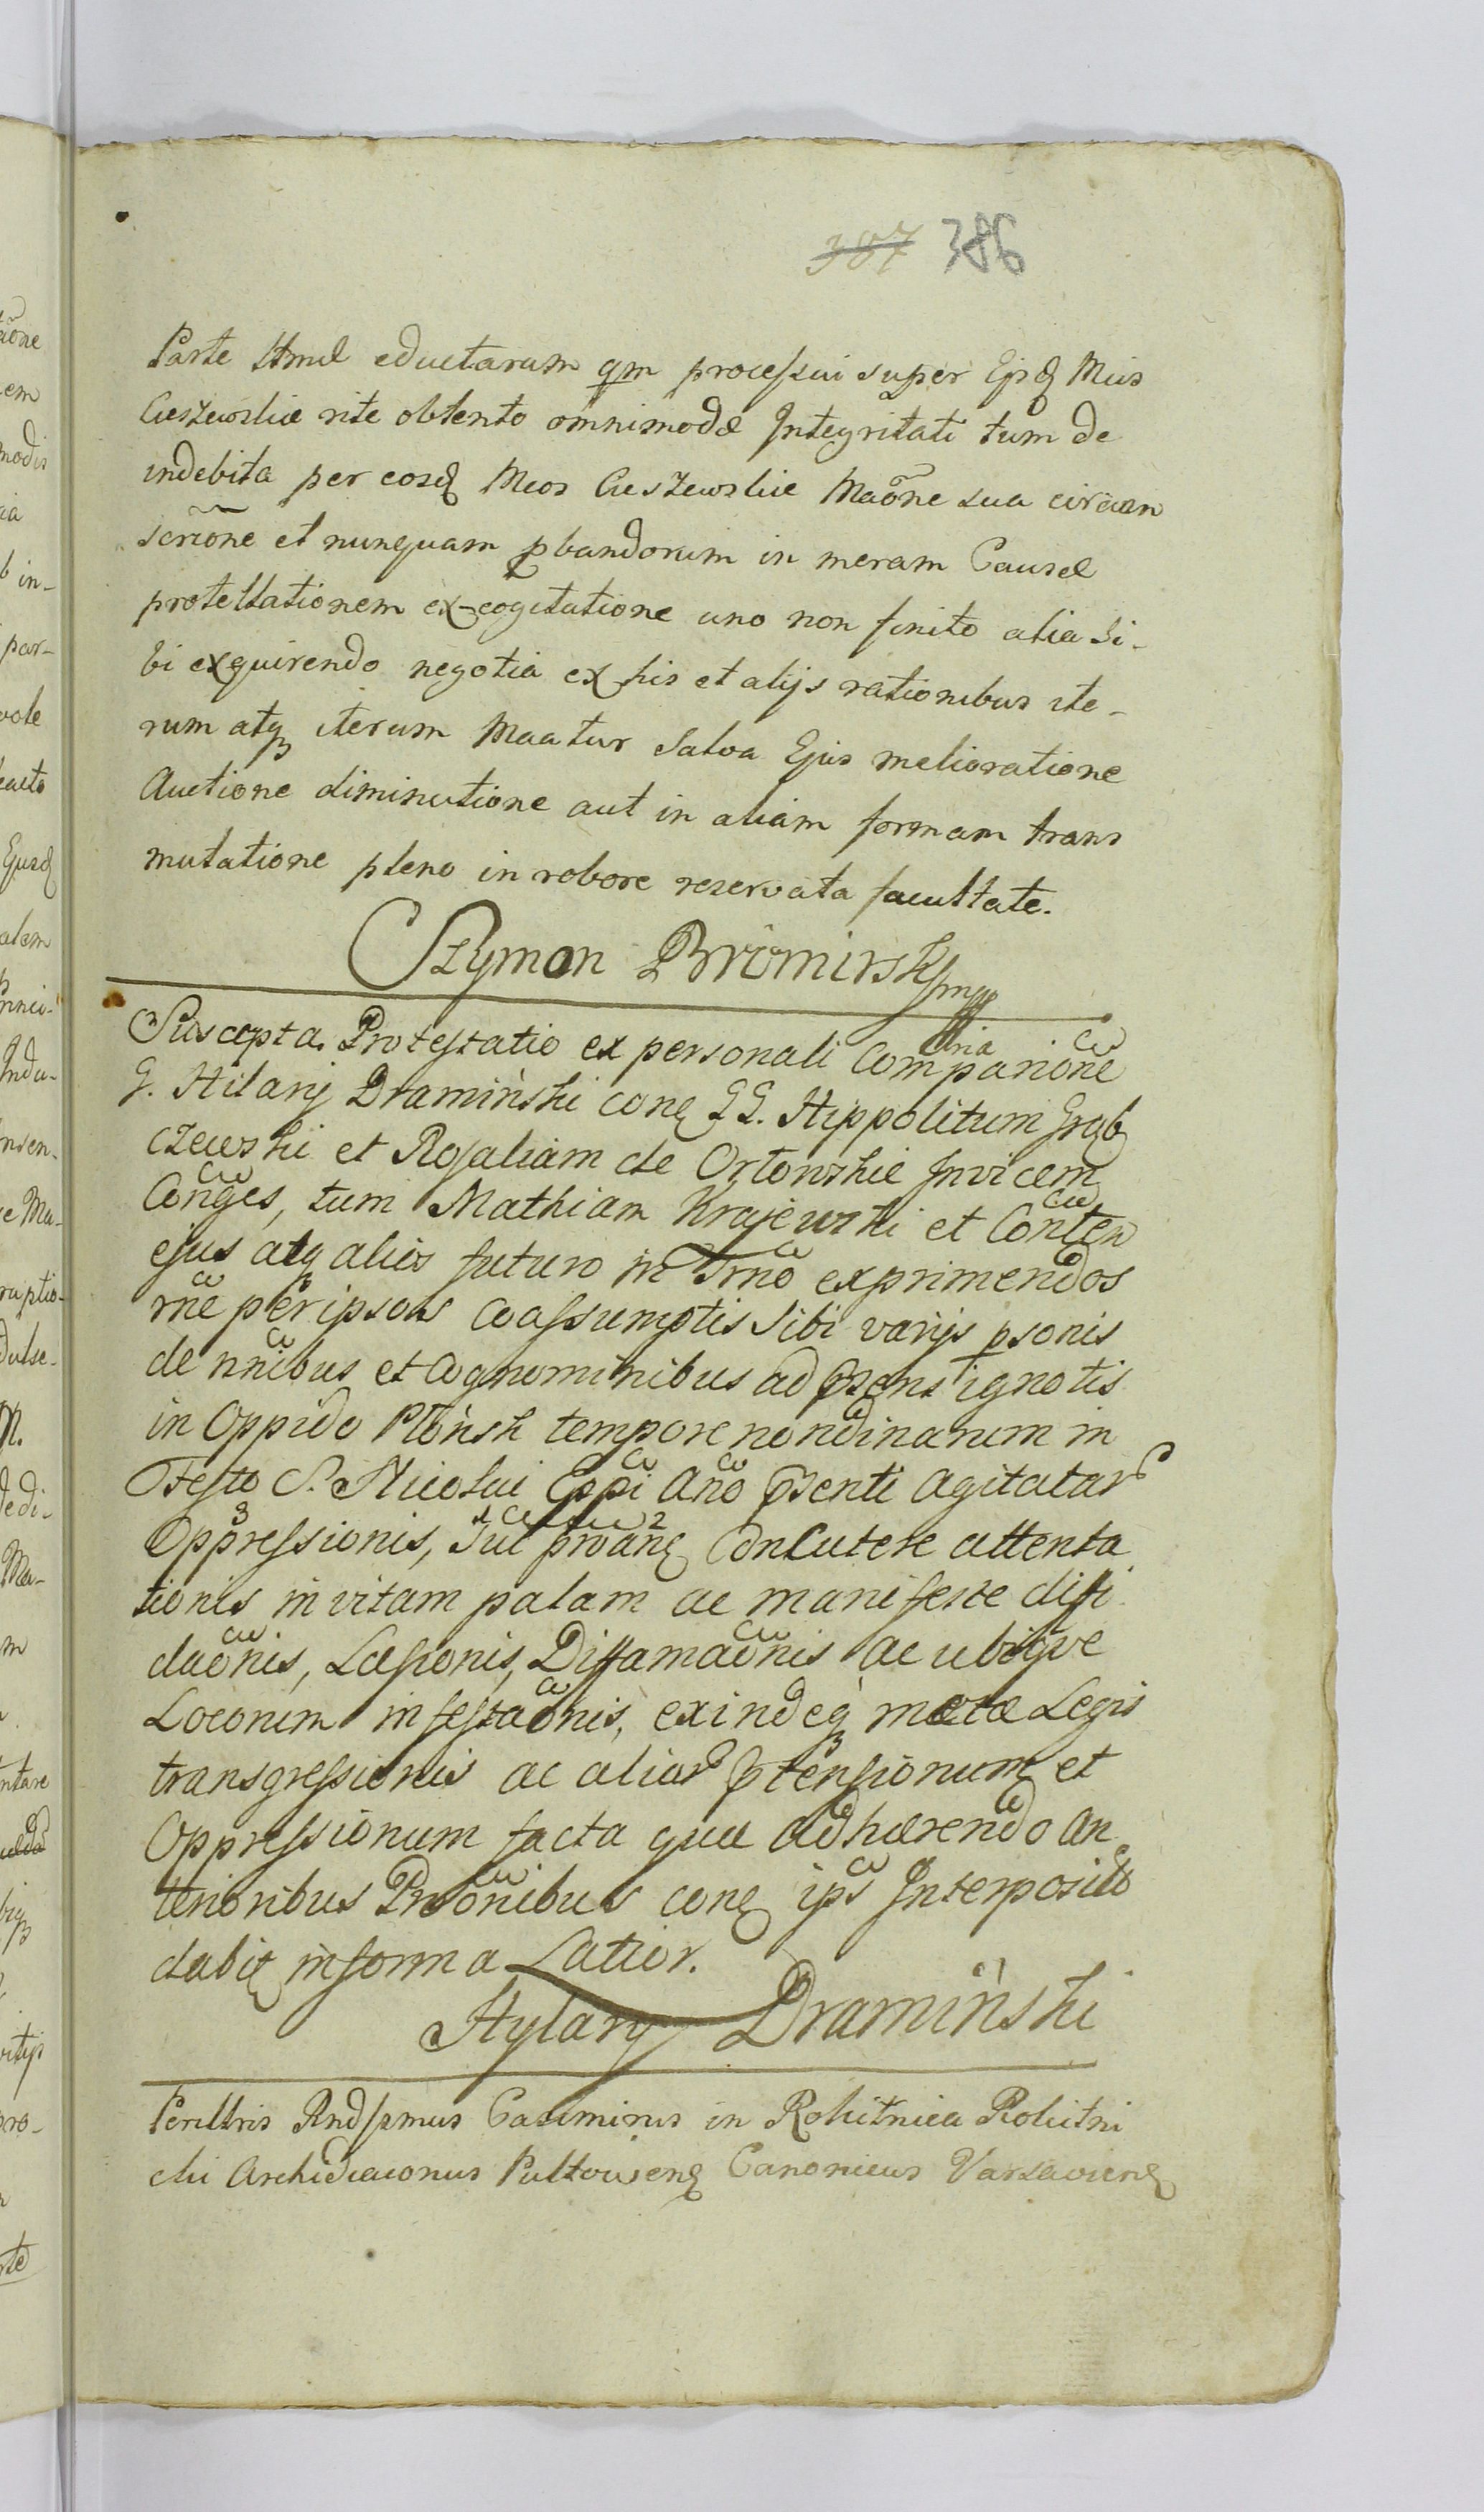 387 386
Parte Hmil eductarum qm processui super Ejsd Meis
Cieszewskie rite obtento omnimodæ Integritati tum de
indebita per eosd Meos Cieszewskie Maõne sua circum
scriõne et nunquam pbandorum in meram Causæ
protellationem ex-cogitatione uno non finito alia si-
bi exquirendo negotia ex his et alijs rationibus ite-
rum atq iterum Maatur Salva Ejus melioratione
Auctione diminutione aut in aliam formam trans
mutatione pleno in robore reservata facultate.
Szymon Bromirski mp
Suscepta Protestatio ex personali Comparione
G. Hilarij Dramiński conq GG. Hippolitum Grąb
czewski et Rosaliam de Ortowskie Invicem
Conges, tum Mathiam Krajewski et Conten
ejus atq alios futuro in Trno exprimendos
rne per ipsos coassumptis sibi varijs psonis
de nnibus et Cognominibus ad psens ignotis
in Oppido Płońsk tempore nondinarum in
Festo S. Nicolai Eppi Ano psenti agitatar
Oppressionis, Sui proanq Concutere attenta
tionis in vitam palam ac manifeste diffi
daõnis, Læsionis, Diffamaõnis ac ubique
Locorum infestaõnis, exindeq metæ Legis
transgressionis ac aliar ptensionum et
Oppressionum facta quæ adhærendo an
terioribus Prõnibus conq ips Interposit
dabit in forma Latior.
Hylary Dramiński
Perilltris Rndssmus Casimirus in Rokitnica Rokitni
cki Archidiaconus Pultowienq Canonicus Varsavienq
aõne
em
modis
ia
b in-
par-
alem
Indu-
nsen-
ce Ma-
raptio-
dedi-
Ma-
m
ntare
pro-